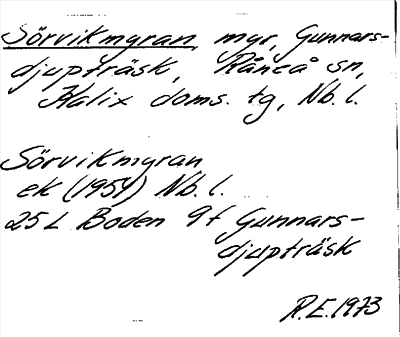 Sörvikmyran, myr, Gunnars-
djupträsk, Råneå sn,
Kalix doms. tg, Nb. l.
Sörvikmyran
ek (1951) Nb. l.
25 L Boden 9 f Gunnars-
djupträsk
R.E. 1973